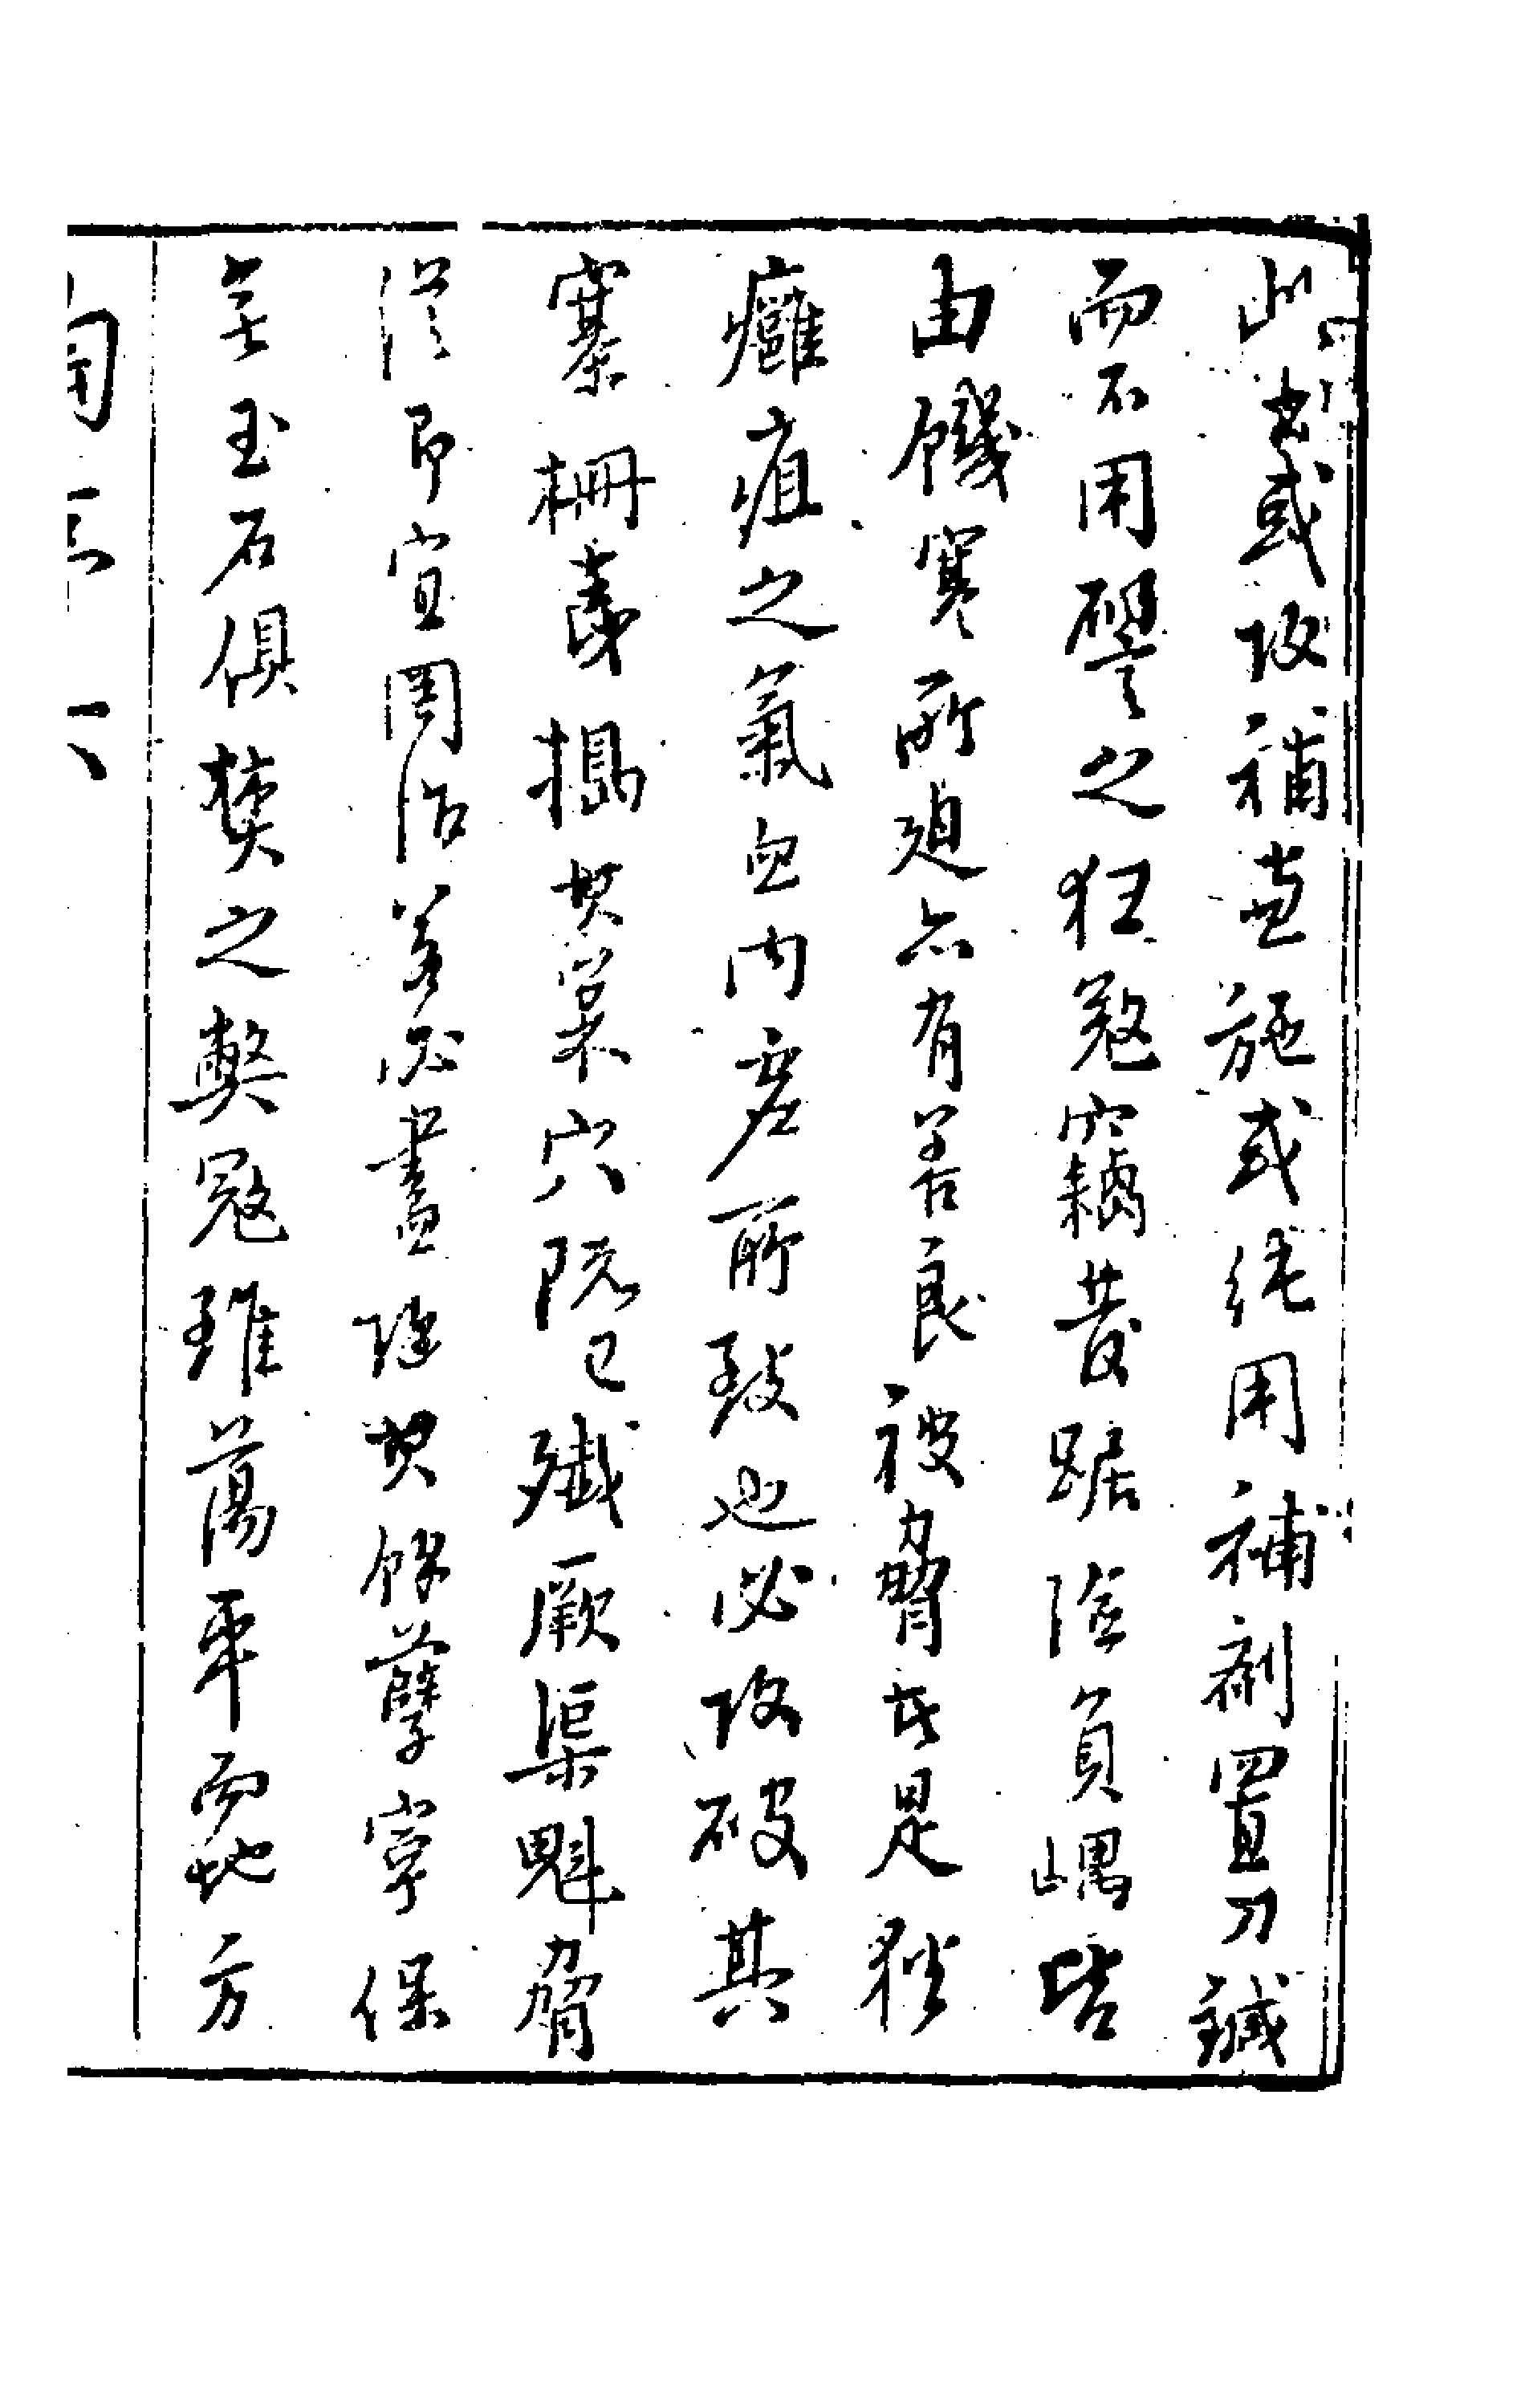 此者或攻補兼施或純用補劑置刀鍼
而不用譬之狂寇竊發踞險負嵎皆
由饑寒所廹亦有善良被脅者是猶
癰疽之氣血內虛所致也必攻破其
寨柵戔搗其巢穴阮已殲厥渠魁脅
從即宜罔治若必盡除其餘孽寧保
無玉石俱焚之弊寇雖蕩平而地方